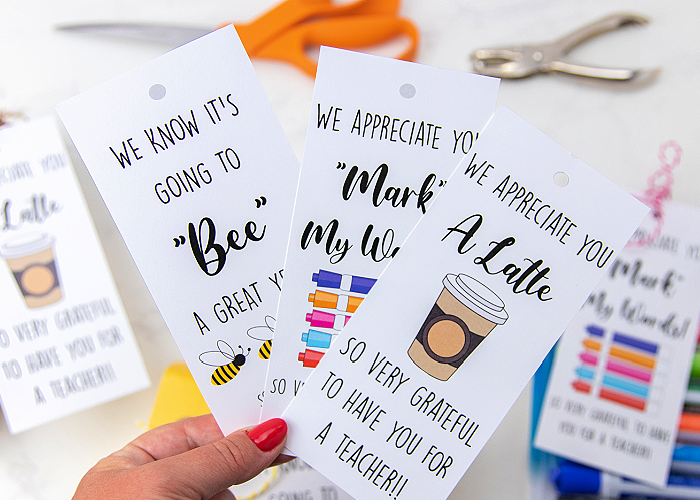 WE KNOW IT'S
GOING TO
"Bee"
A GREAT
WE APPRECIATE
"Mark"
My
SO
WE APPRECIATE YOU
A Latte
SO VERY GRATEFUL
TO HAVE YOU FOR
A TEACHER!!
Latte
SO VERY GRATEFUL
TO HAVE YOU FOR
A TEACHER!!
YOU
"Mark"
My Words!
SO VERY GRATEFUL TO HAVE
YOU FOR A TEACHER!!
GOING TO